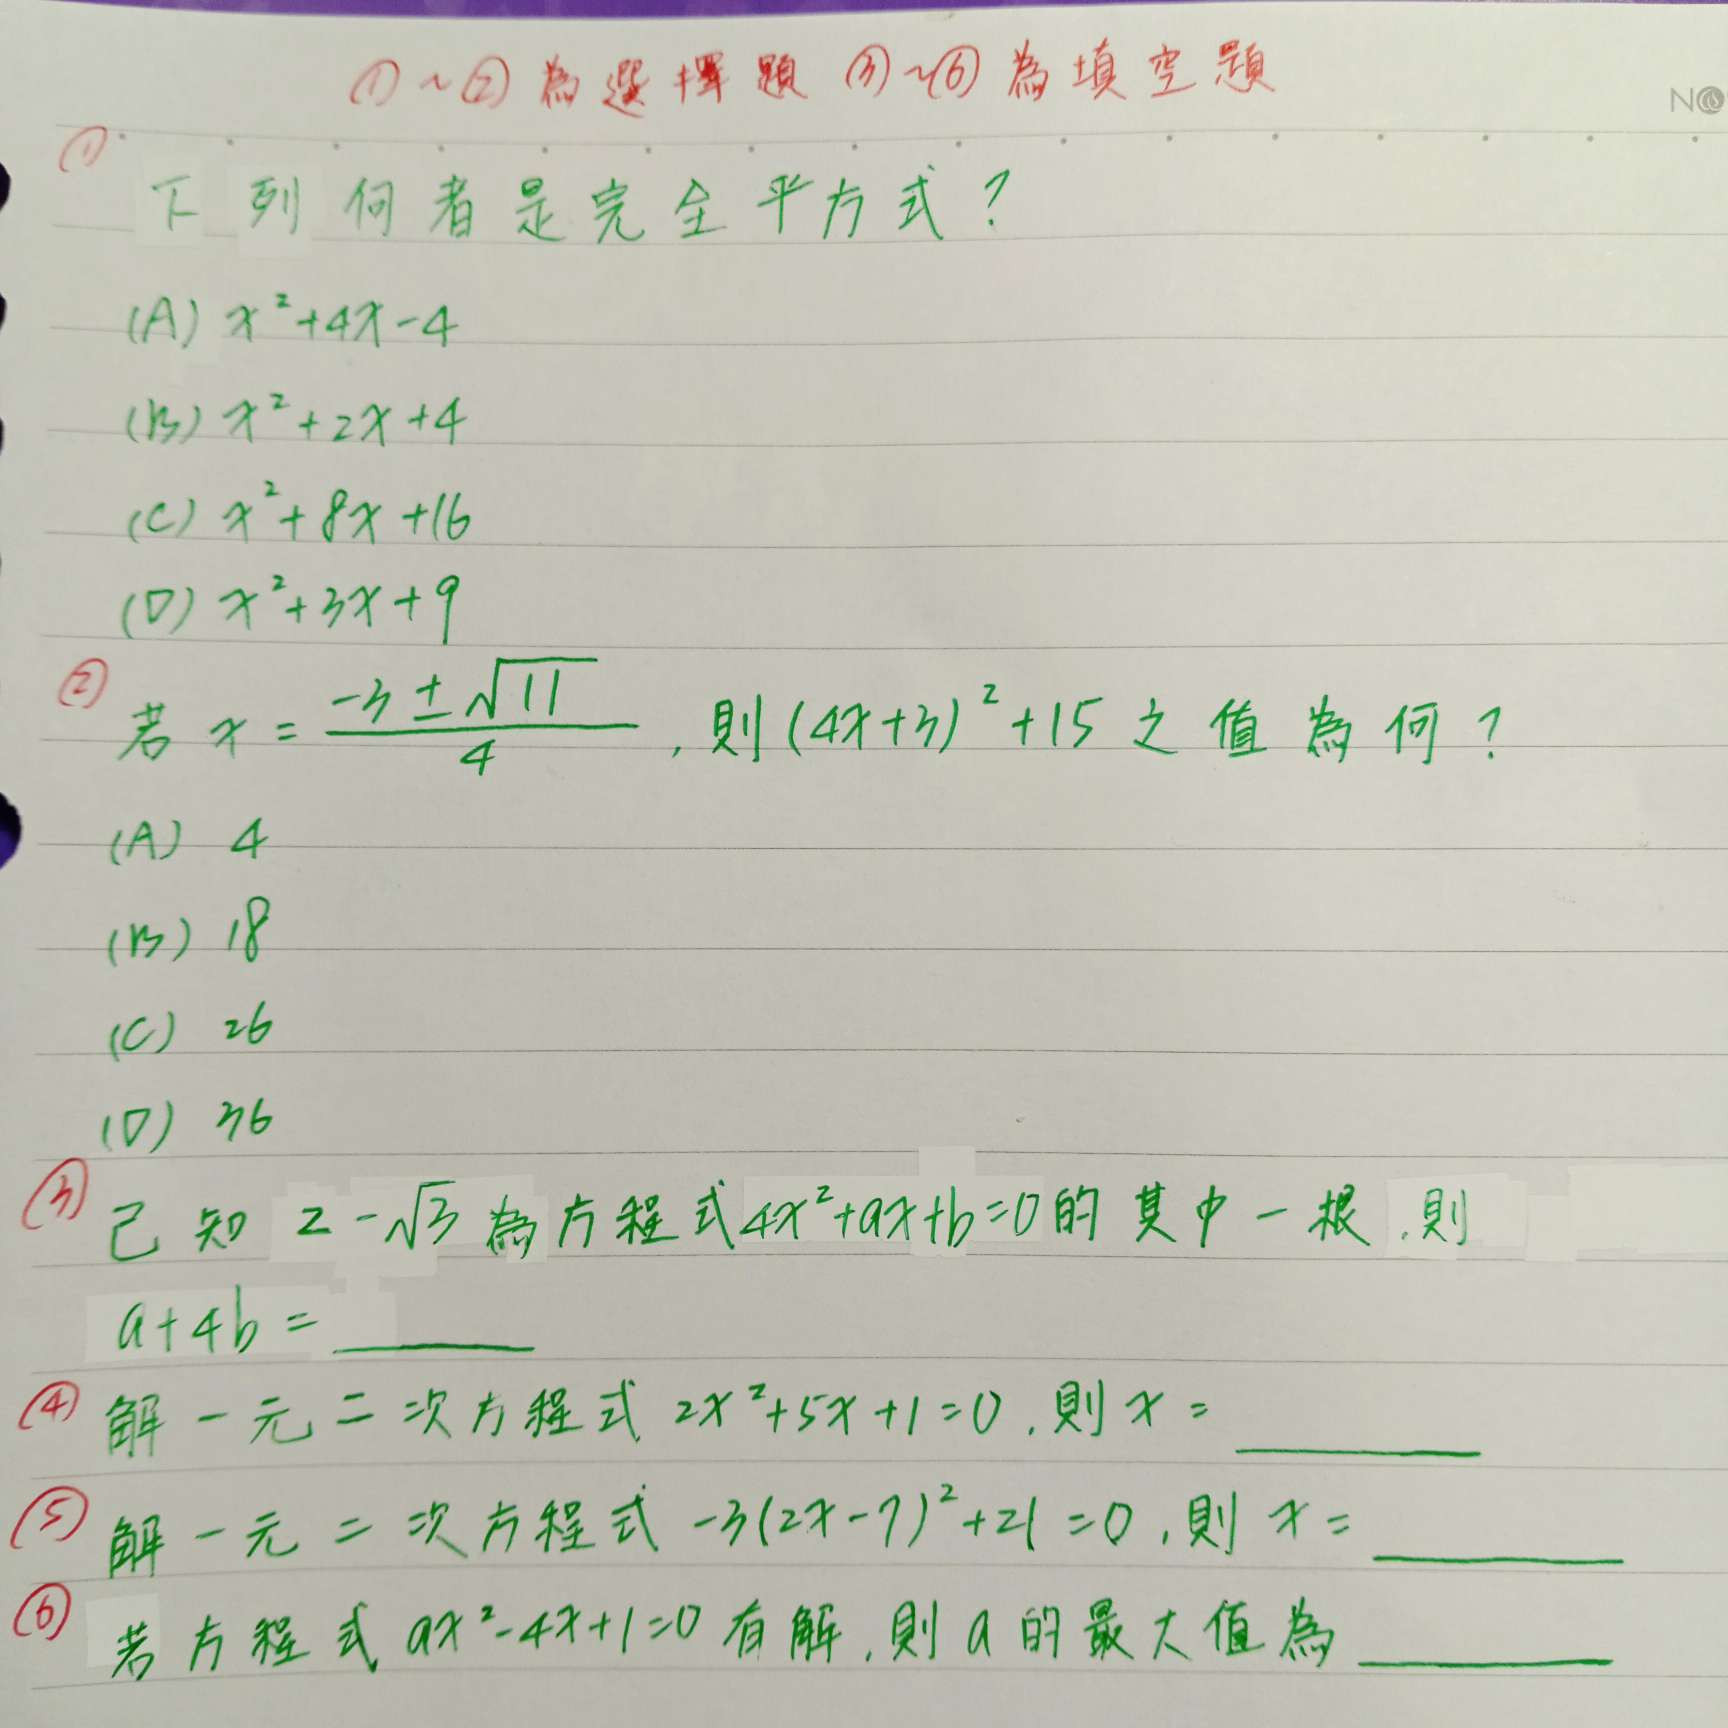 ①~②為選擇題 ③~⑥為填空題
①
下列何者是完全平方式?
(A) x²+4x-4
(B) x²+2x+4
(C) x²+8x+16
(D) x²+3x+9
② 若 x = (-3±√11)/4 , 則(4x+3)²+15之值為何?
(A) 4
(B) 18
(C) 26
(D) 36
③ 已知 2-√3 為方程式4x²+ax+b=0的其中一根,則
a+4b = ______
④ 解一元二次方程式 2x²+5x+1=0,則x= ______
⑤ 解一元二次方程式 -3(2x-7)²+21=0,則 x= ______
⑥ 若方程式 ax²-4x+1=0有解,則a的最大值為 ______